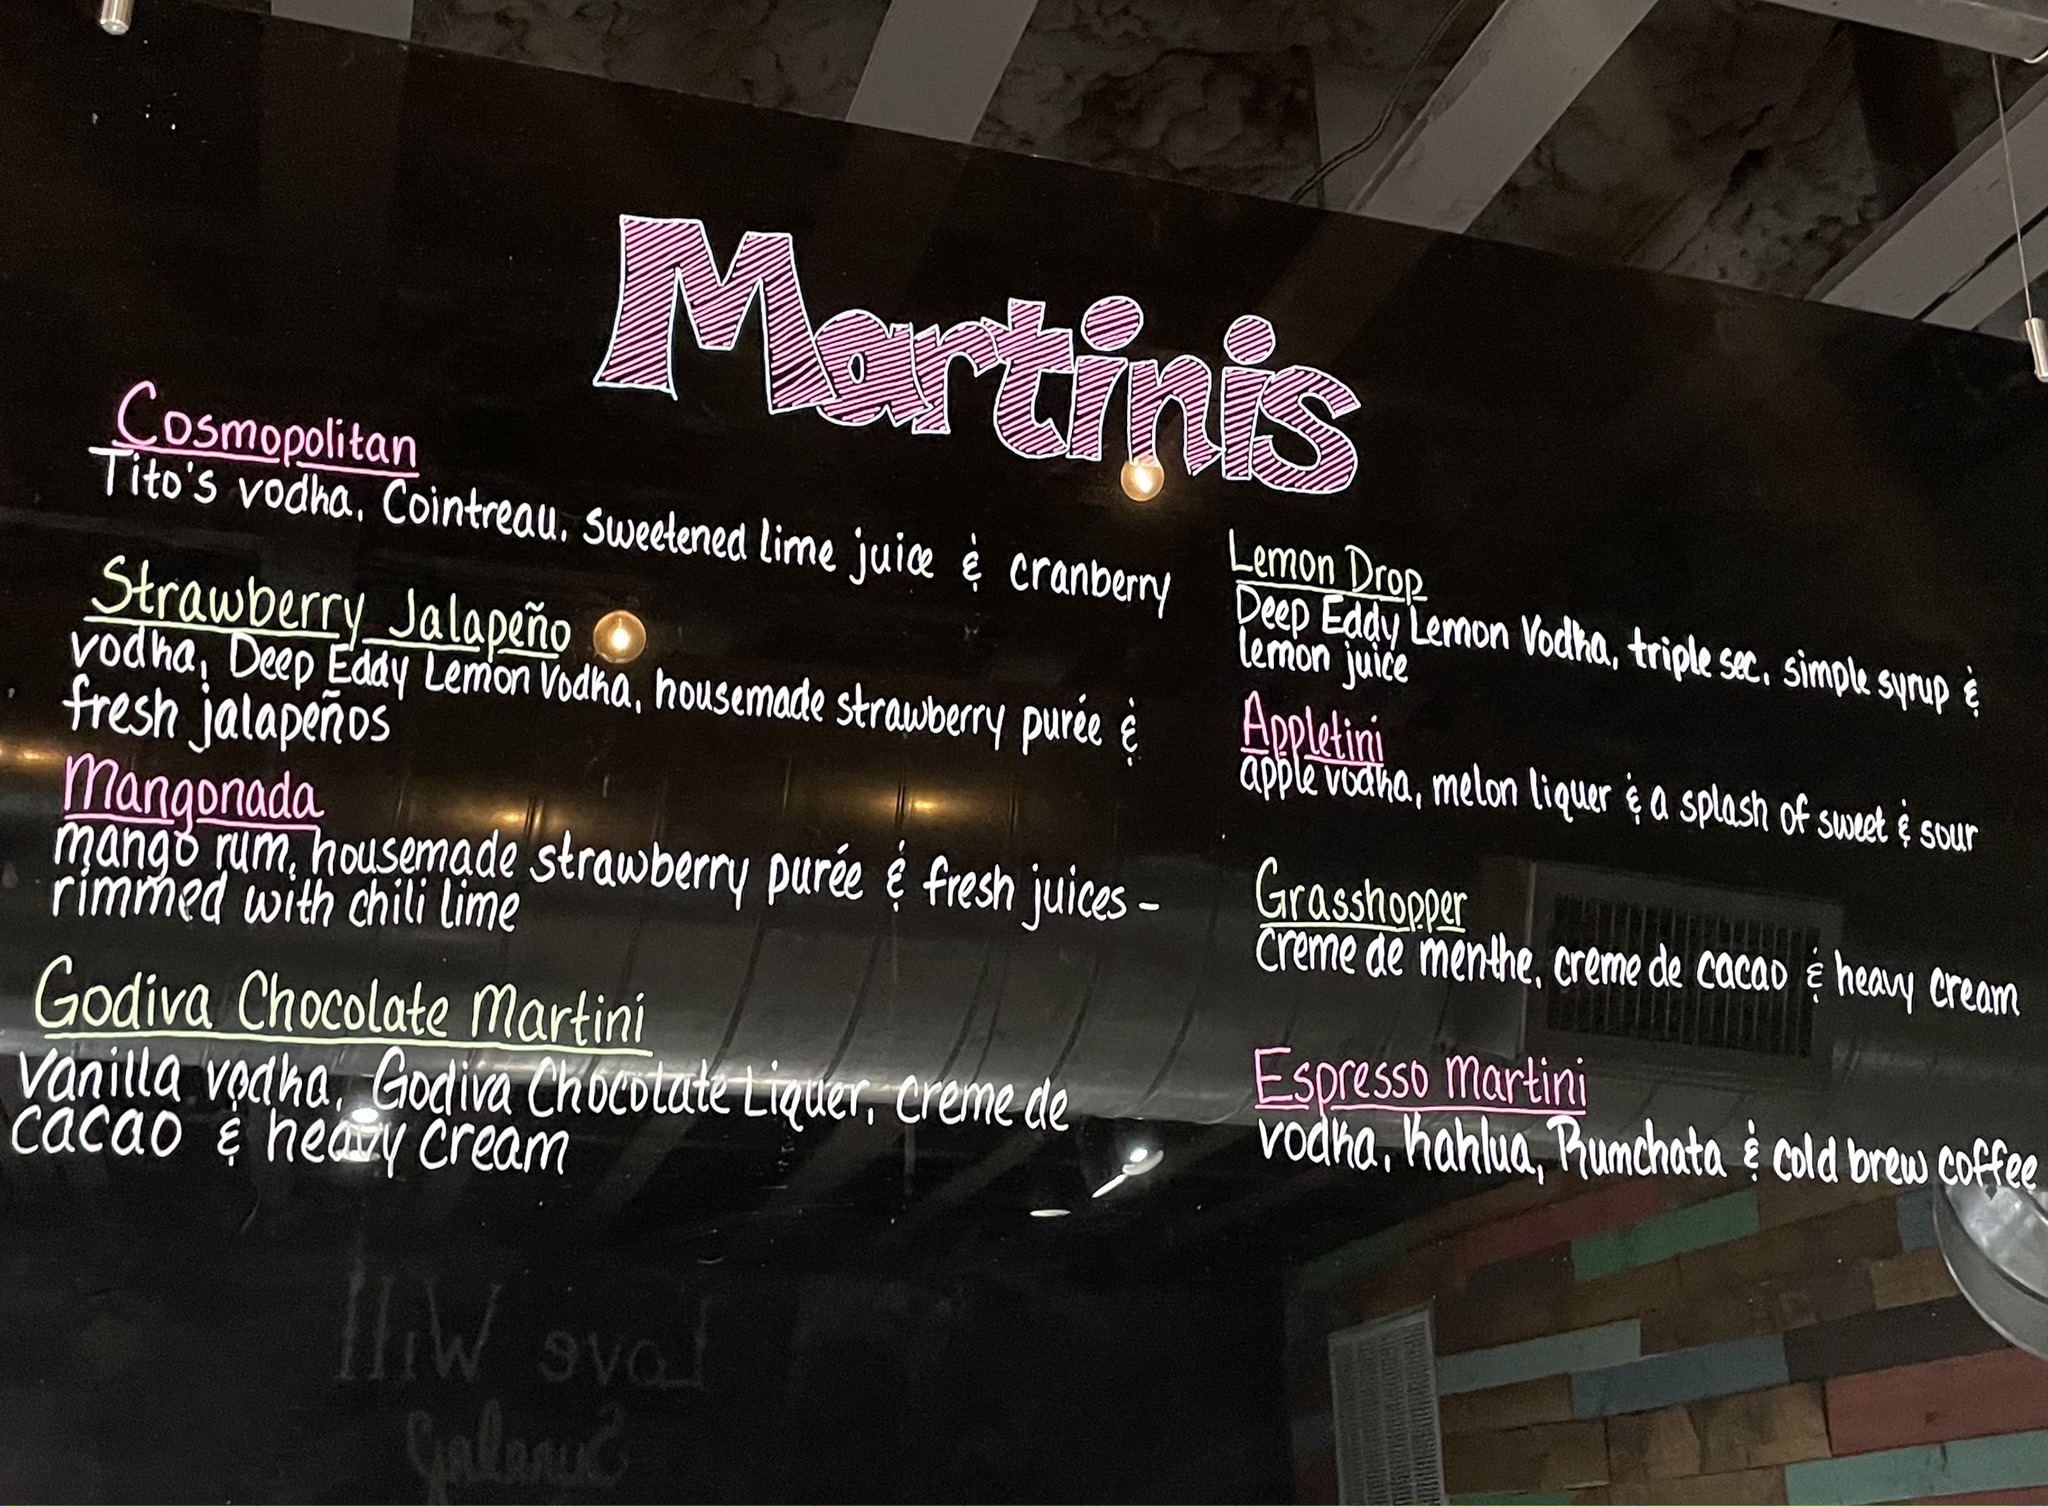 Martinis
Cosmopolitan
Tito's vodka, Cointreau, sweetened lime juice & cranberry
Strawberry Jalapeño
vodka, Deep Eddy Lemon Vodka, housemade strawberry purée &
fresh jalapeños
Mangonada
mango rum, housemade strawberry purée & fresh juices -
rimmed with chili lime
Godiva Chocolate Martini
vanilla vodka, Godiva Chocolate Liquer, creme de
cacao & heavy cream
Lemon Drop
Deep Eddy Lemon Vodka, triple sec, simple syrup &
lemon juice
Appletini
apple vodka, melon liquer & a splash of sweet & sour
Grasshopper
creme de menthe, creme de cacao & heavy cream
Espresso Martini
vodka, Kahlua, Rumchata & cold brew coffee
Love Will